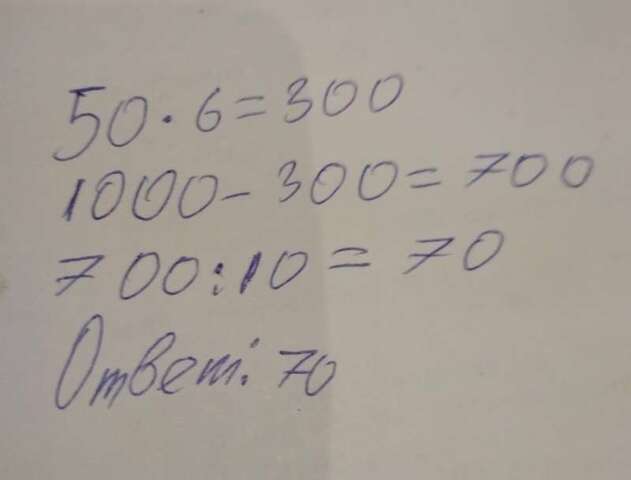 50 · 6 = 300
1000 - 300 = 700
700 : 10 = 70
Ответ: 70